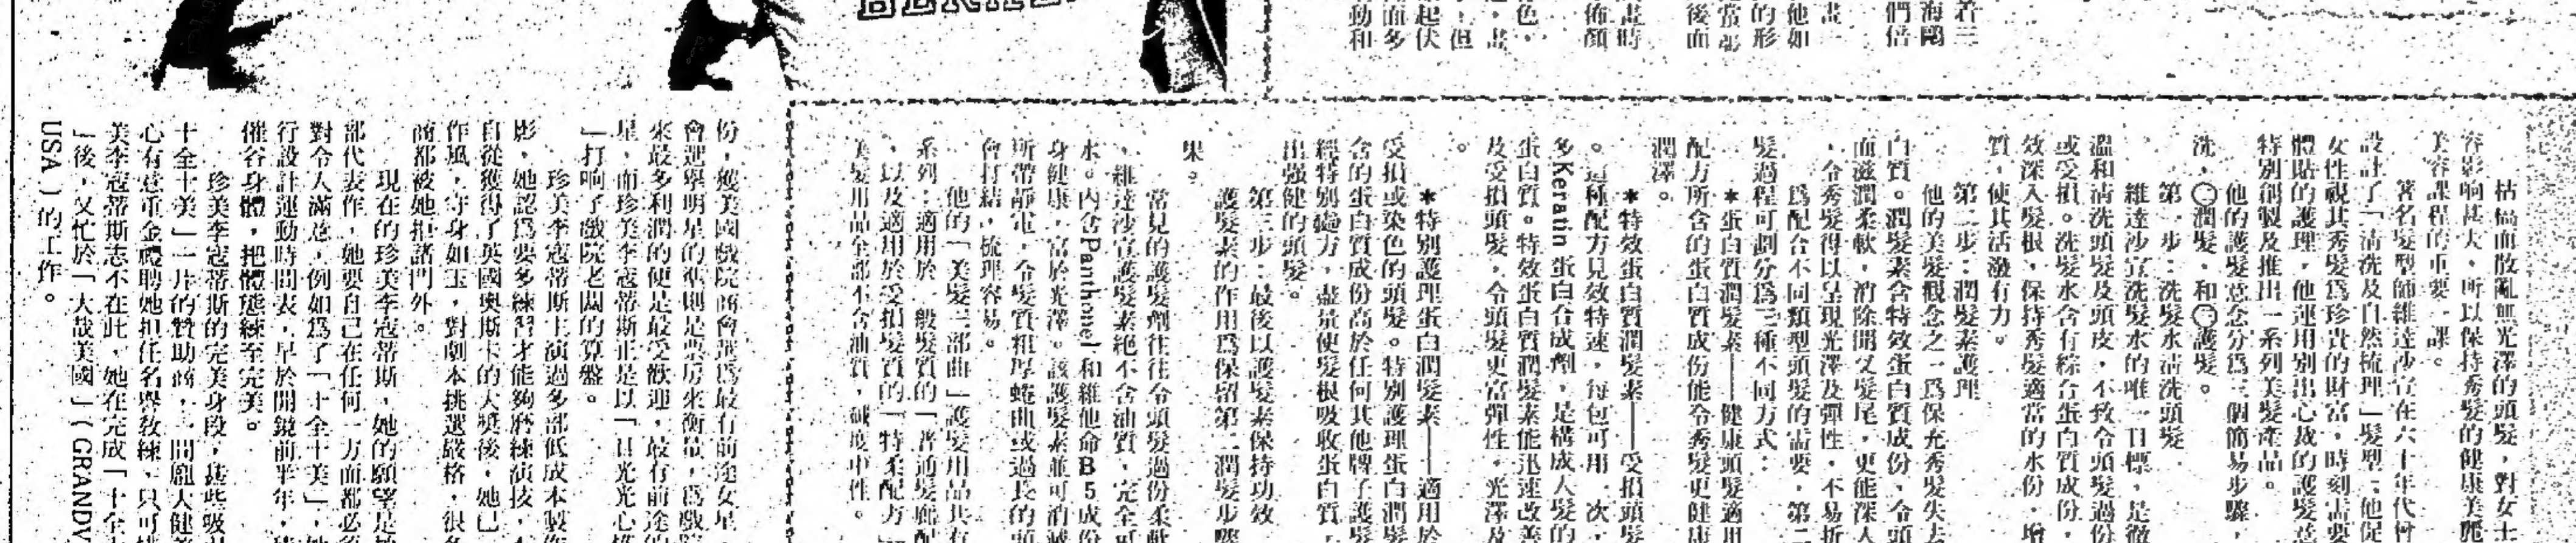 若三
海鷗
們倍
畫一
他如
的形
當彩
後面
畫時
佈顏
色，
，但
起伏
面多
動和
枯槁而散亂無光澤的頭髮，對女士
容影响甚大，所以保持秀髮的健康美麗
美容課程的重要一課。
著名髮型師維達沙宣在六十年代曾
設計了「清洗及自然梳理」髮型；他促
女性視其秀髮爲珍貴的財富，時刻需要
體貼的護理，他運用別出心裁的護髮意
特別創製及推出一系列美髮產品。
他的護髮意念分爲三個簡易步驟，
洗，㊀潤髮，和㊂護髮。
第一步：洗髮水清洗頭髮
維達沙宣洗髮水的唯一目標，是徹
溫和清洗頭髮及頭皮，不致令頭髮過份
或受損。洗髮水含有綜合蛋白質成份，
效深入髮根，保持秀髮適當的水份，增
質，使其活潑有力。
第二步：潤髮素護理
他的美髮觀念之一爲保充秀髮失去
白質。潤髮素含特效蛋白質成份，令頭
而滋潤柔軟，消除開叉髮尾，更能深入
，令秀髮得以呈現光澤及彈性，不易折
爲配合不同類型頭髮的需要，第二
髮過程可劃分爲三種不同方式：
＊蛋白質潤髮素——健康頭髮適用
配方所含的蛋白質成份能令秀髮更健康
潤澤。
＊特效蛋白質潤髮素——受損頭髮
。這種配方見效特速，每包可用一次，
多Keratin蛋白合成劑，是構成人髮的
蛋白質。特效蛋白質潤髮素能迅速改善
及受損頭髮，令頭髮更富彈性，光澤及
。
＊特別護理蛋白潤髮素——適用於
受損或染色的頭髮。特別護理蛋白潤髮
含的蛋白質成份高於任何其他牌子護髮
經特別處方，盡量使髮根吸收蛋白質，
出强健的頭髮。
第三步：最後以護髮素保持功效
護髮素的作用爲保留第二潤髮步驟
果。
常見的護髮劑往往令頭髮過份柔軟
，維達沙宣護髮素絕不含油質，完全可
水。內含Panthonel和維他命B5成份
身健康，富於光澤。該護髮素並可消滅
所帶靜電，令髮質粗厚蜷曲或過長的頭
會打結，梳理容易。
他的「美髮三部曲」護髮用品共有
系列；適用於一般髮質的「普通髮廊配
，以及適用於受損髮質的「特柔配方」
美髮用品全部不含油質，鹹度中性。
份，獲美國戲院商會選爲最有前途女星，
會選舉明星的準則是票房來衡量，爲戲院
來最多利潤的便是最受歡迎，最有前途的
星，而珍美李寇蒂斯正是以「日光光心
」打响了戲院老闆的算盤。
珍美李寇蒂斯主演過多部低成本製作
影，她認爲要多練習才能夠磨練演技，
自從獲得了英國奧斯卡的大獎後，她已
作風，守身如玉，對劇本挑選嚴格，很多
商都被她拒諸門外。
現在的珍美李寇蒂斯，她的願望是
部代表作，她要自己在任何一方面都必須
對令人滿意，例如爲了「十全十美」，她
行設計運動時間表，早於開鏡前半年，
催谷身體，把體態練至完美。
珍美李寇蒂斯的完美身段，甚些吸
十全十美」一片的贊助商，一間龐大健
心有意重金禮聘她担任名譽敎練，只可惜
美李寇蒂斯志不在此，她在完成「十全
」後，又忙於「大哉美國」（GRANDV
USA）的工作。